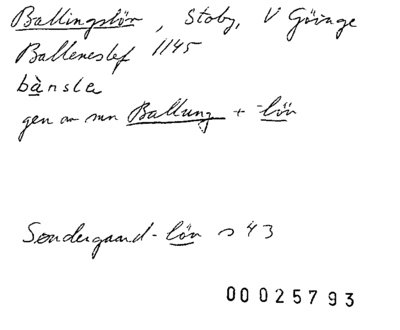 Ballingslöv, Stoby, V Göinge
Balleneslef 1145
bànsle
gen av mn Ballung + -löv
Søndergaard - löv s 43
00025793